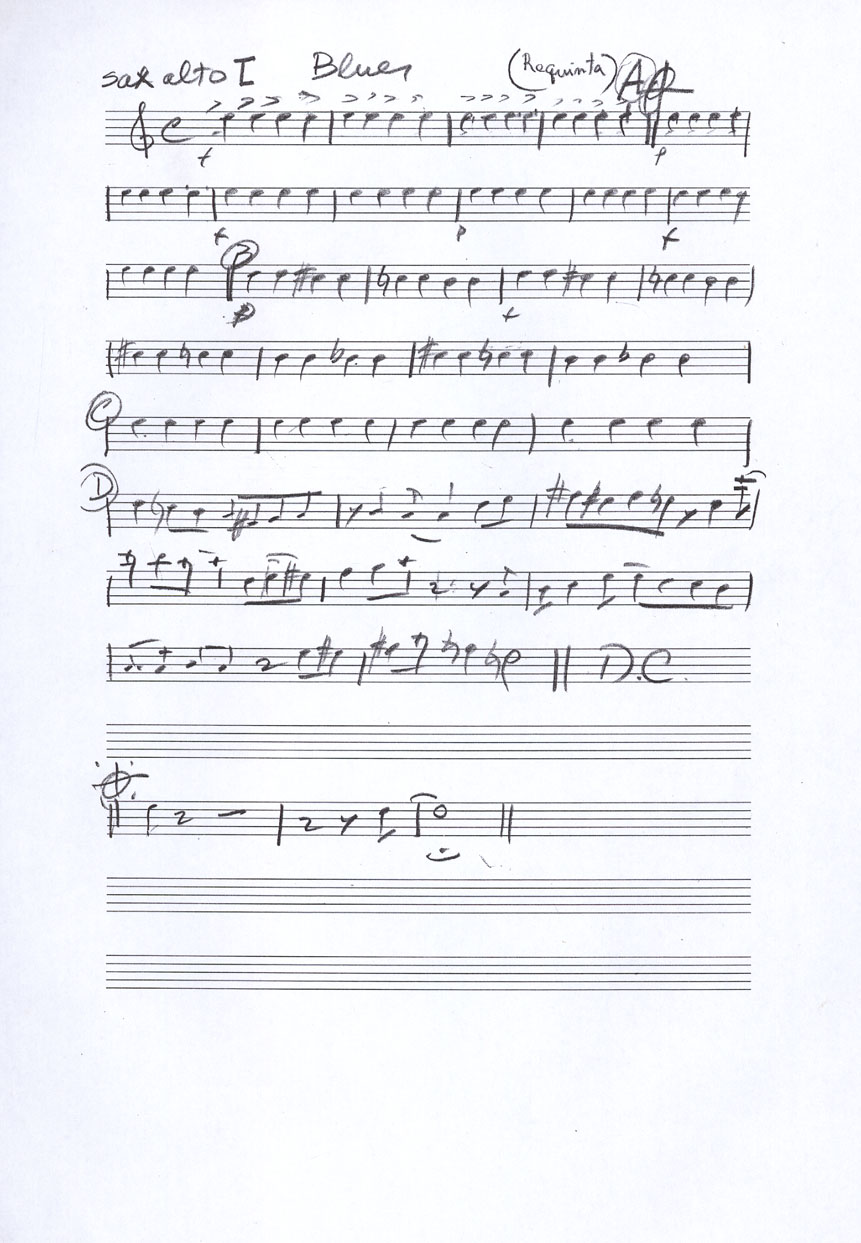 sax alto I Blues (Requinta) A
f p
f p f
B
p f
C
D
D.C.